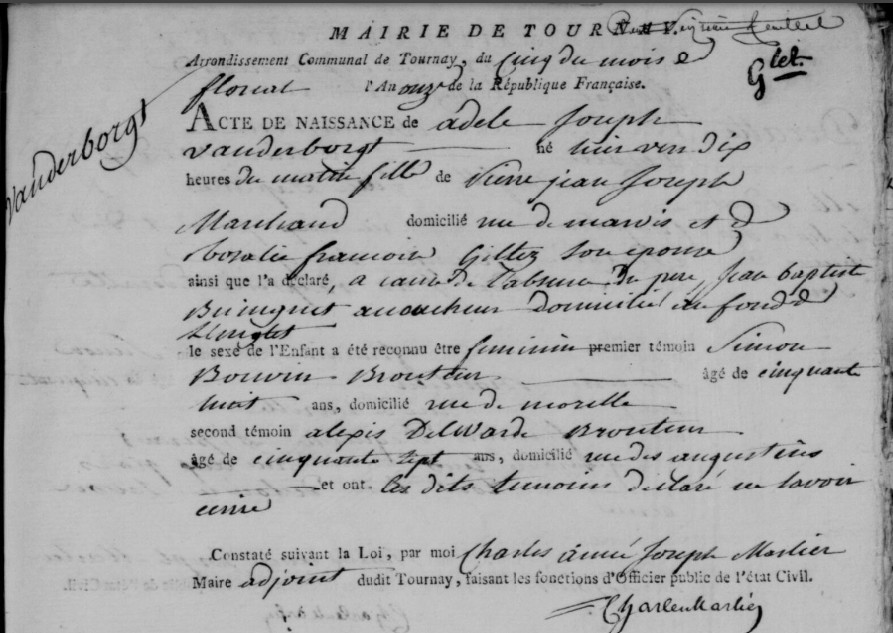 MAIRIE DE TOURNAY.
Glet.
Arrondissement Communal de Tournay, du Cinq du mois de
floreal l'An onze de la République Française.
Vanderborgt
ACTE DE NAISSANCE de adele Joseph
vanderborgt né hier vers dix
heures du matin fille de Pierre jean Joseph
Marchand domicilié rue de marvis et de
rosalie francoise Gillez son epouse
ainsi que l'a déclaré, a cause de l'absence du pere, Jean baptiste
accoucheur domicilié au fond d
le sexe de l'Enfant a été reconnu être feminin premier témoin Simon
Bouvin Brouteur âgé de cinquante
huit ans, domicilié rue de morelle
second témoin alexis Delwarde Brouteur
âgé de cinquante sept ans, domicilié rue des augustins
et ont les dits temoins declaré ne savoir
ecrire
Constaté suivant la Loi, par moi Charles aimé Joseph Marlier
Maire adjoint dudit Tournay, faisant les fonctions d'Officier public de l'état Civil.